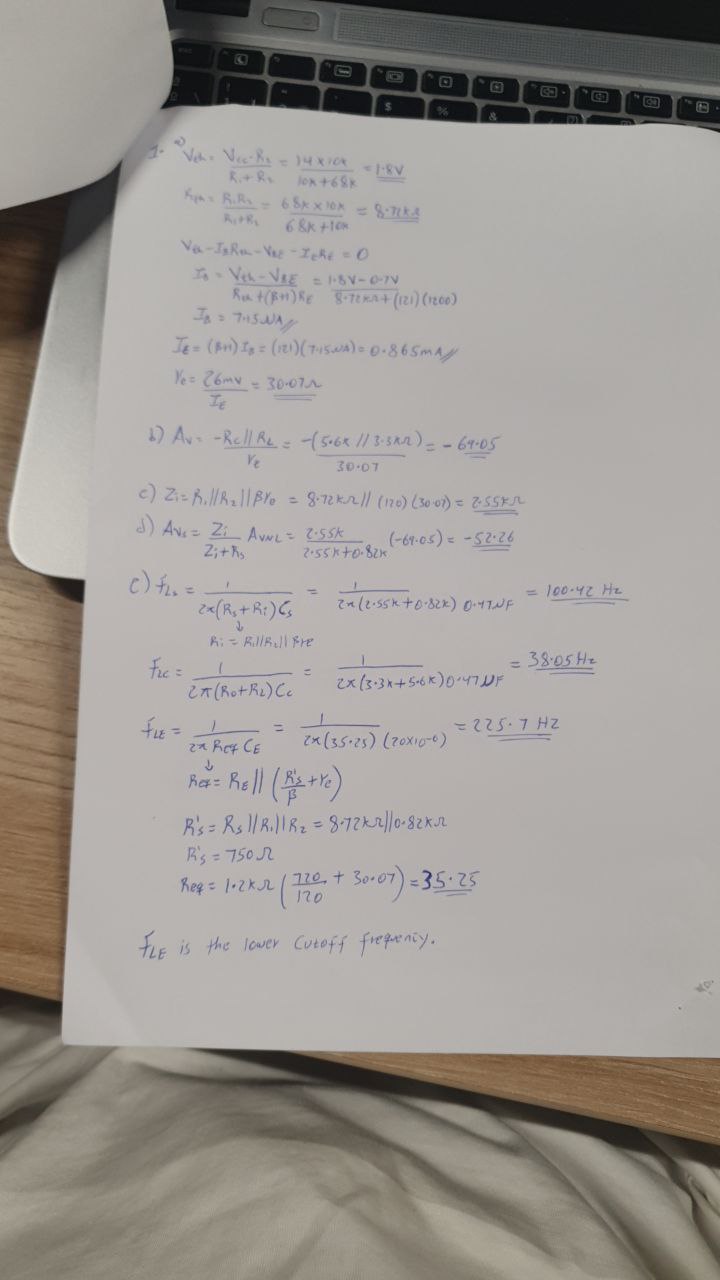 1. a) Vth = Vcc·R2 / R1+R2 = 14 x 10k / 10k+68k = 1.8V
Rth = R1R2 / R1+R2 = 68k x 10k / 68k+10k = 8.72kΩ
Vth - IBRth - VBE - IERE = 0
IB = Vth - VBE / Rth + (β+1)RE = 1.8V - 0.7V / 8.72kΩ + (121)(1200)
IB = 7.15uA //
IE = (β+1)IB = (121)(7.15uA) = 0.865mA //
re = 26mv / IE = 30.07Ω
b) Av = -Rc||RL / re = -(5.6k // 3.3kΩ) / 30.07 = -69.05
c) Zi = R1||R2||βre = 8.72kΩ// (120)(30.07) = 2.55kΩ
d) Avs = Zi / Zi+Rs AvNL = 2.55k / 2.55k+0.82k (-69.05) = -52.26
e) fLs = 1 / 2π(Rs+Ri)Cs = 1 / 2π(2.55k+0.82k) 0.47uF = 100.42 Hz
↓
Ri = R1||R2||βre
FLC = 1 / 2π(Ro+RL)Cc = 1 / 2π(3.3k+5.6k)0.47uF = 38.05Hz
fLE = 1 / 2π Req CE = 1 / 2π(35.25)(20x10-6) = 225.7 HZ
↓
Req = RE || (R's / β + re)
R's = Rs||R1||R2 = 8.72kΩ||0.82kΩ
R's = 750Ω
Req = 1.2kΩ (720 / 120 + 30.07) = 35.25
fLE is the lower cutoff frequency.